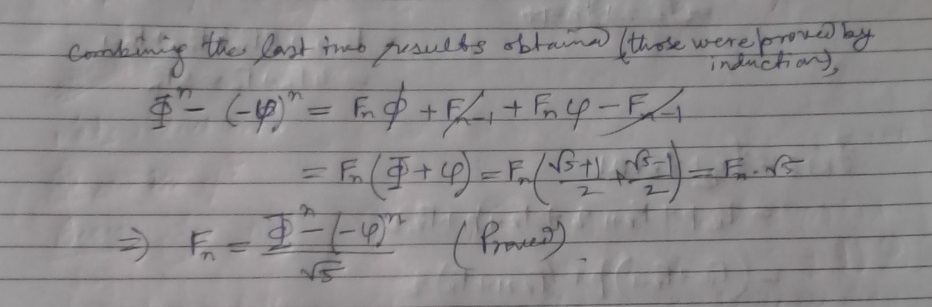 Combining the last two results obtained (those were proved by
induction),
Φⁿ - (-φ)ⁿ = Fₙ Φ + Fₙ₋₁ + Fₙ φ - Fₙ₋₁
= Fₙ (Φ + φ) = Fₙ ((√5+1)/2 + (√5-1)/2) = Fₙ . √5
⇒ Fₙ = (Φⁿ - (-φ)ⁿ)/√5 (Proved).